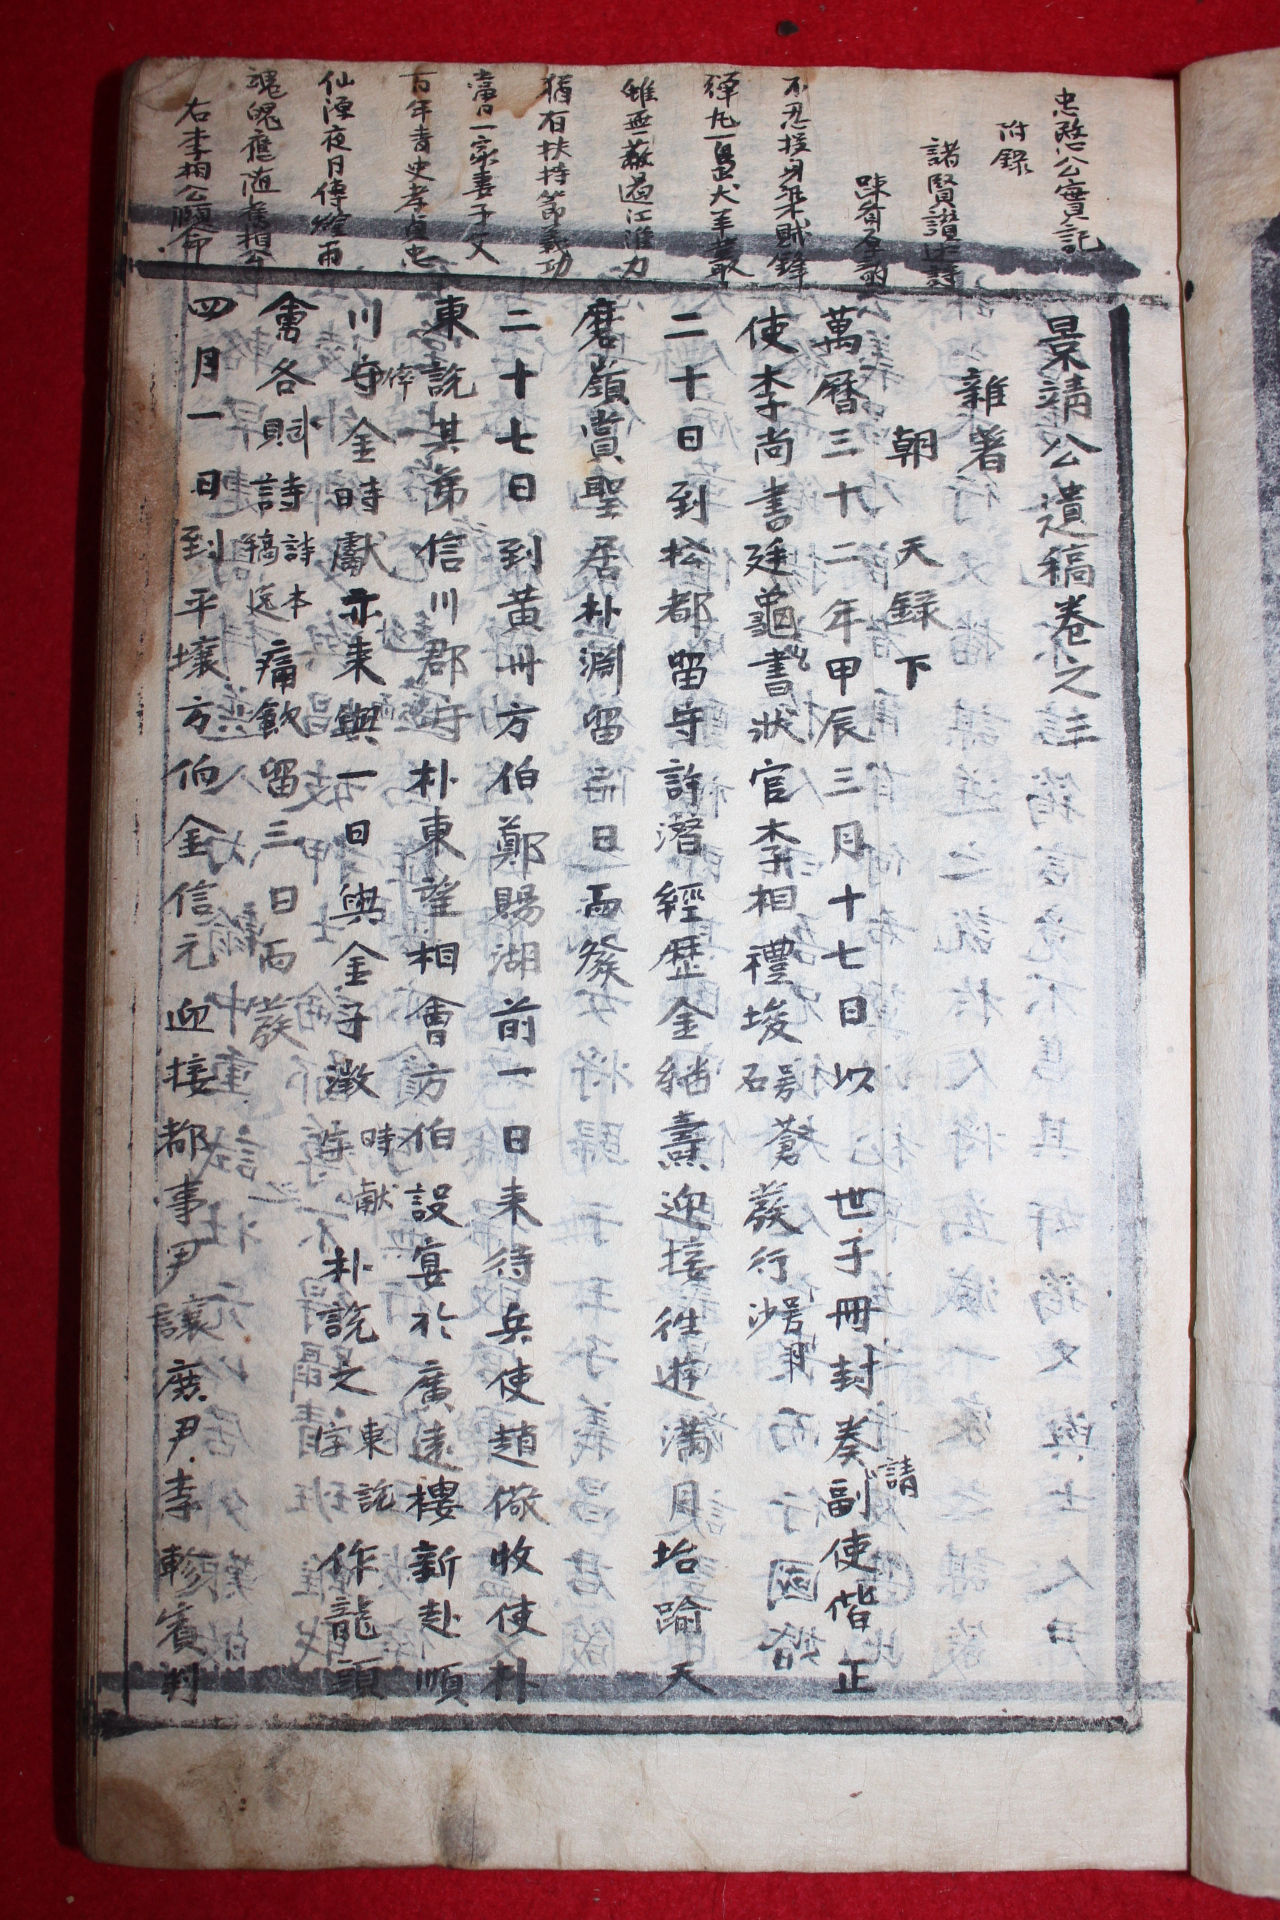 忠愍公實記
附錄
諸賢讃述詩
疎菴
不忍挺身乘賊鋒
彈丸一邑犬羊叢
雖無蔽遏江淮力
猶有扶持節義功
當日一家妻子父
百年靑史孝貞忠
仙源夜月傳
魂魄應隨舊相公
右李相公顧命
景靖公遺稿卷之三
雜著
朝天錄下
萬曆三十二年甲辰三月十七日以世子冊封奏請副使偕正
使李尚書廷龜書狀官李相禮埈發行
二十日到松都留守許潛經歷金緻壽迎接徃遊滿月坮踰天
磨嶺賞聖居朴淵留二日而發
二十七日到黃州方伯鄭賜湖前一日來待兵使趙儆收使朴
東說其弟信川郡守朴東望相會方伯設宴於廣遠樓新赴順
川守金時獻亦來與一日與金子徵時獻朴說之東說字作龍頭
會各賦詩詩本稿逸痛飮留三日而發
四月一日到平壤方伯金信元迎接都事尹讓庶尹李軫賓對